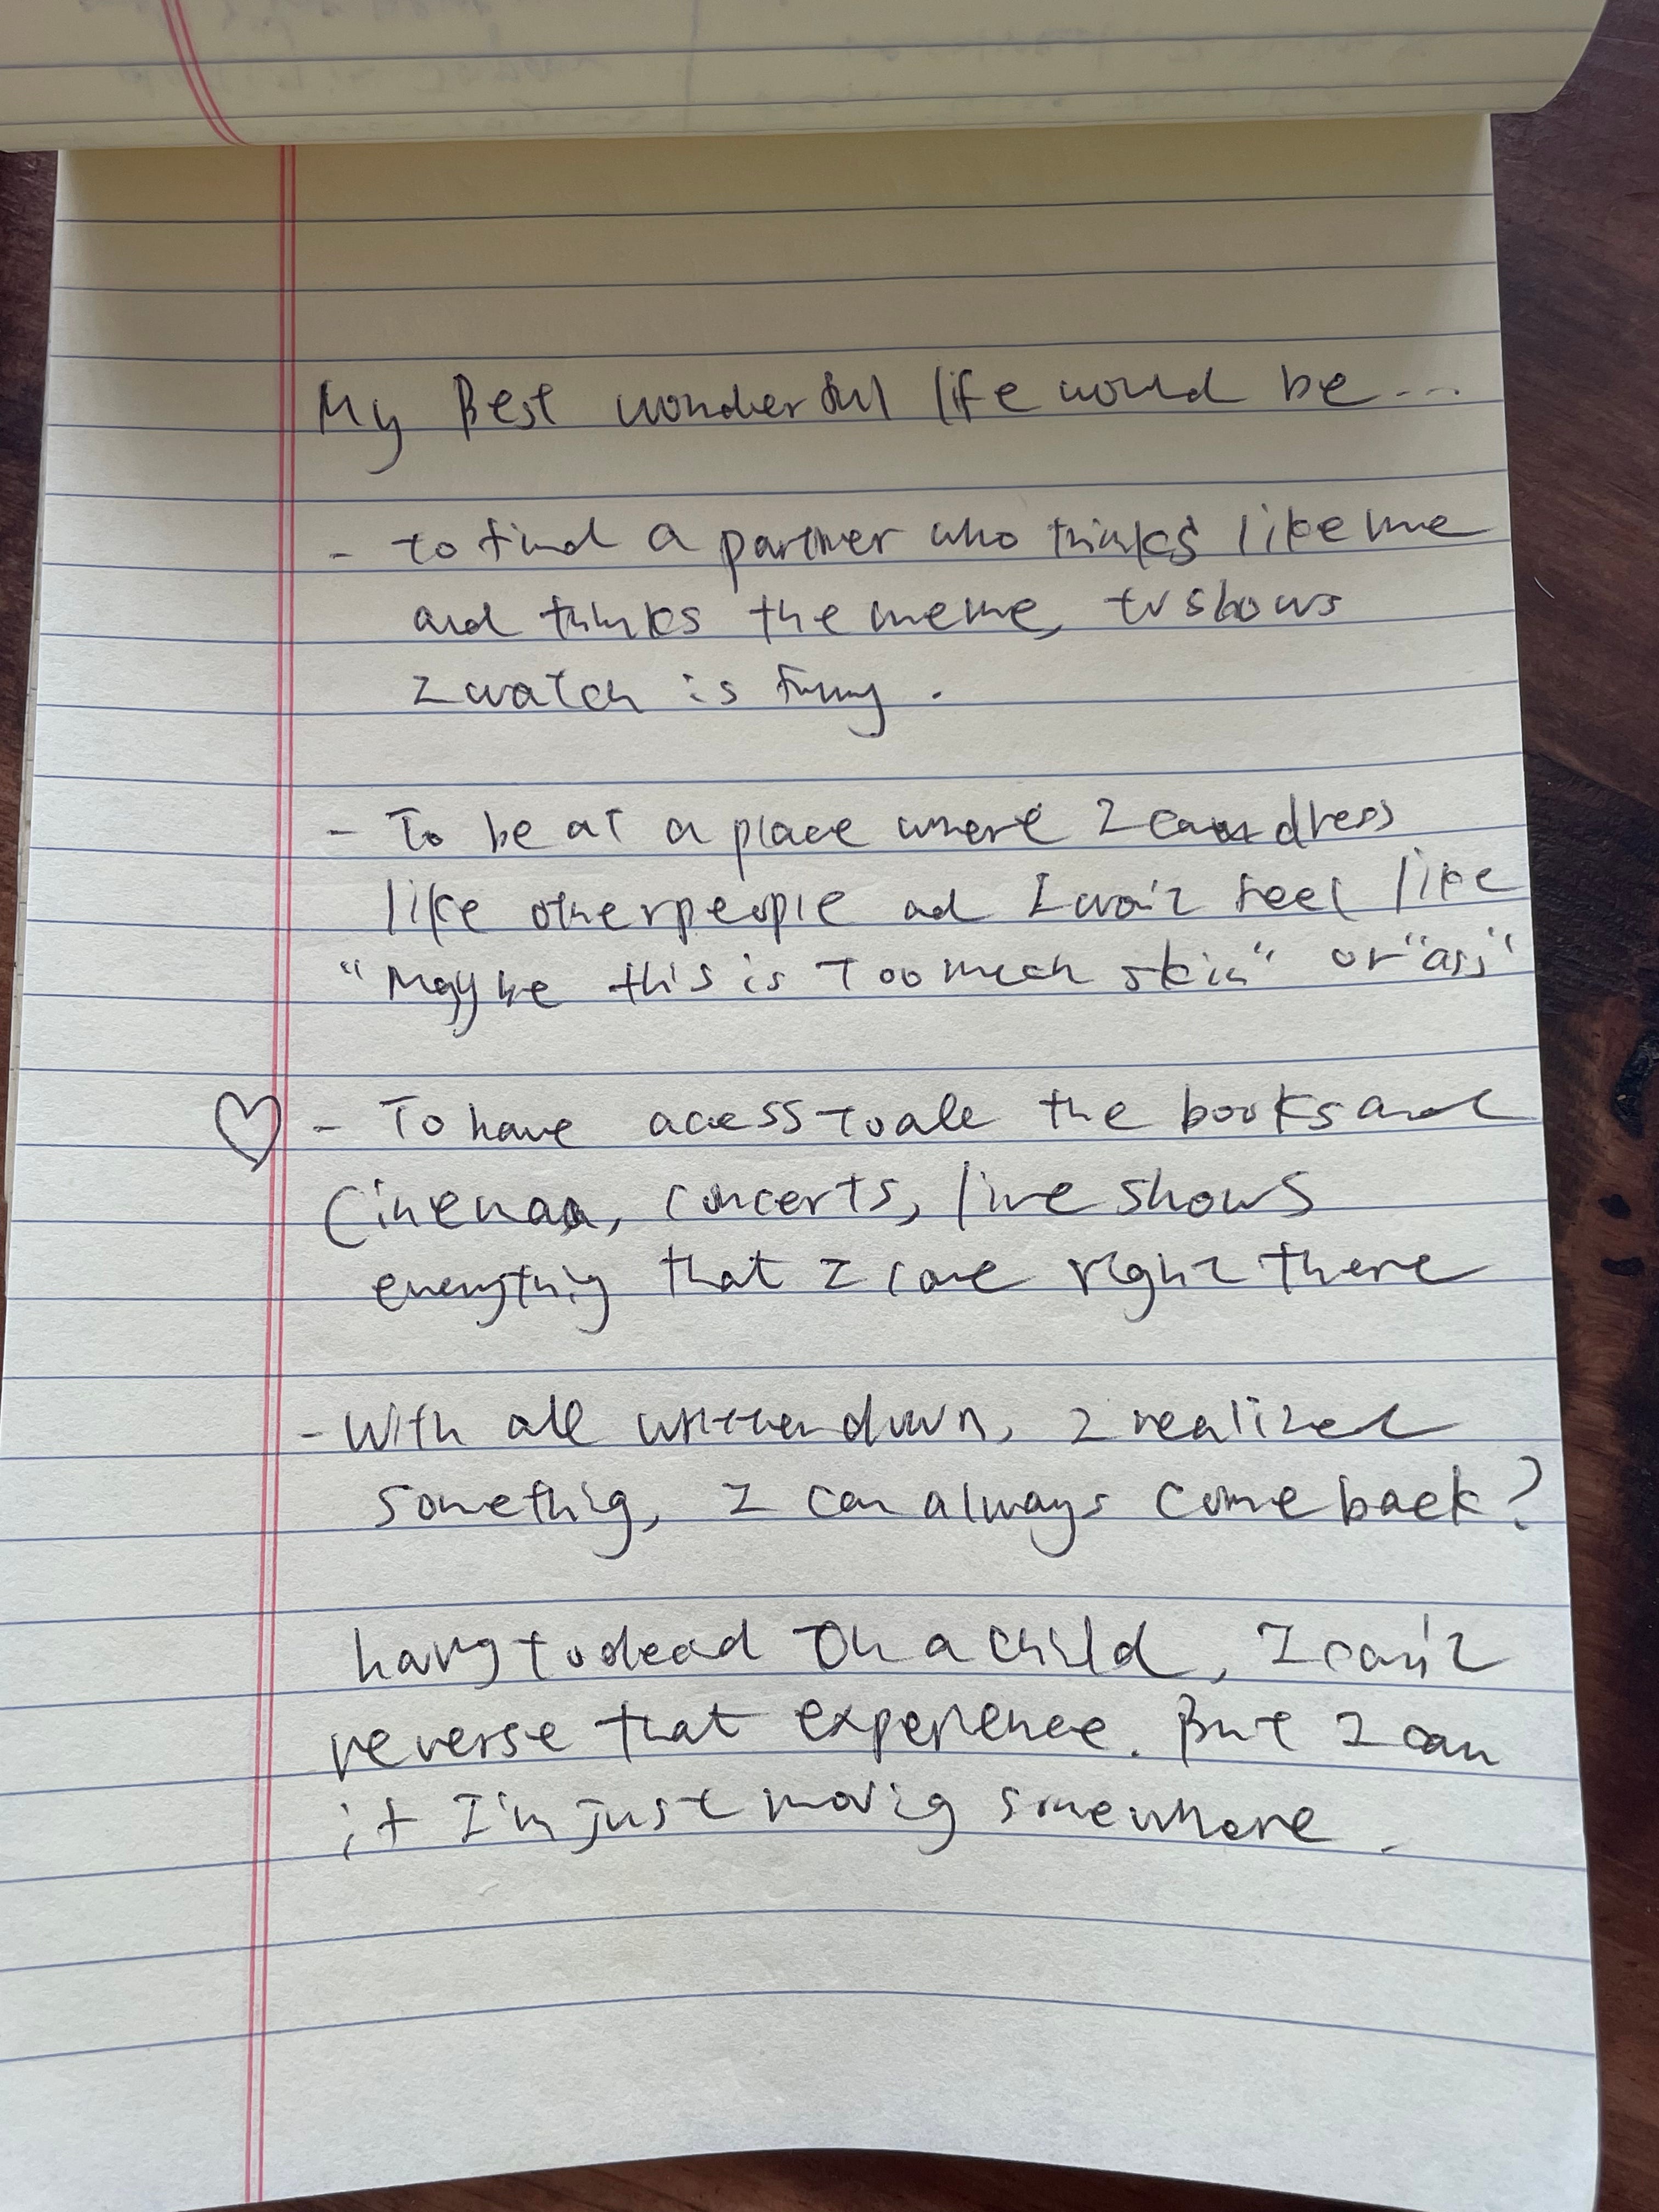 My Best wonderful life would be...
- to find a partner who thinks like me
and thinks the meme, tv shows
I watch is funny.
- To be at a place where I can dress
like other people and I won't feel like
"Maybe this is Too much skin" or "ass"
- To have access to all the books and
Cinema, concerts, live shows
everything that I love right there
- With all written down, I realized
something, I can always come back?
having to dead on a child, I can't
reverse that experience. But I can
if I'm just moving somewhere.